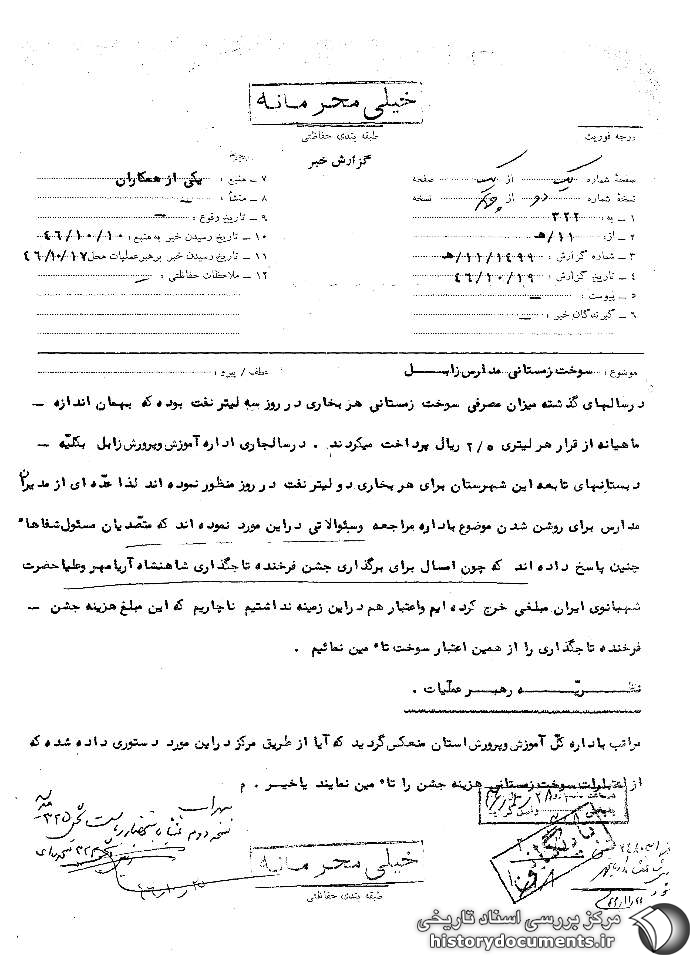 خیلی محرمانه
طبقه بندی حفاظتی
درجه فوریت
گزارش خبر
صفحه شماره یک از یک صفحه
نسخه شماره دو از چهار نسخه
۱ ـ به : ۳۲۲
۲ ـ از: ۱۱/هـ
۳ ـ شماره گزارش : ۱۱/۱۴۹۹/هـ
۴ ـ تاریخ گزارش : ۴۶/۱۰/۱۹
۵ ـ پیوست : ـ
۶ ـ گیرندگان خبر : ـ
۷ ـ منبع : یکی از همکاران
۸ ـ منشأ : ـ
۹ ـ تاریخ وقوع : ـ
۱۰ ـ تاریخ رسیدن خبر به منبع : ۴۶/۱۰/۱۰
۱۱ ـ تاریخ رسیدن خبر برهبر عملیات محل ۴۶/۱۰/۱۷
۱۲ ـ ملاحظات حفاظتی : ـ
موضوع : سوخت زمستانی مدارس زابل
عطف / پیرو :
درسالهای گذشته میزان مصرفی سوخت زمستانی هر بخاری در روز سه لیتر نفت بوده که بهمان اندازه ـ
ماهیانه از قرار هر لیتری ۲/۵ ریال پرداخت میکردند . درسالجاری اداره آموزش وپرورش زابل بکلیه ـ
دبستانهای تابعه این شهرستان برای هر بخاری دو لیتر نفت در روز منظور نموده اند لذا عده ای از مدیران
مدارس برای روشن شدن موضوع باداره مراجعه وسئوالاتی دراین مورد نموده اند که متصدیان مسئول شفاهاً
چنین پاسخ داده اند که چون امسال برای برگذاری جشن فرخنده تاجگذاری شاهنشاه آریامهر وعلیاحضرت
شهبانوی ایران مبلغی خرج کرده ایم واعتبار هم دراین زمینه نداشتیم ناچاریم که این مبلغ هزینه جشن ـ
فرخنده تاجگذاری را از همین اعتبار سوخت تاءمین نمائیم .
نظریه رهبر عملیات .
مراتب باداره کل آموزش وپرورش استان منعکس گردید که آیا از طریق مرکز دراین مورد دستوری داده شده که
از اعتبارات سوخت زمستانی هزینه جشن را تاءمین نمایند یاخیر . م
خیلی محرمانه
طبقه بندی حفاظتی
مرکز بررسی اسناد تاریخی
historydocuments.ir